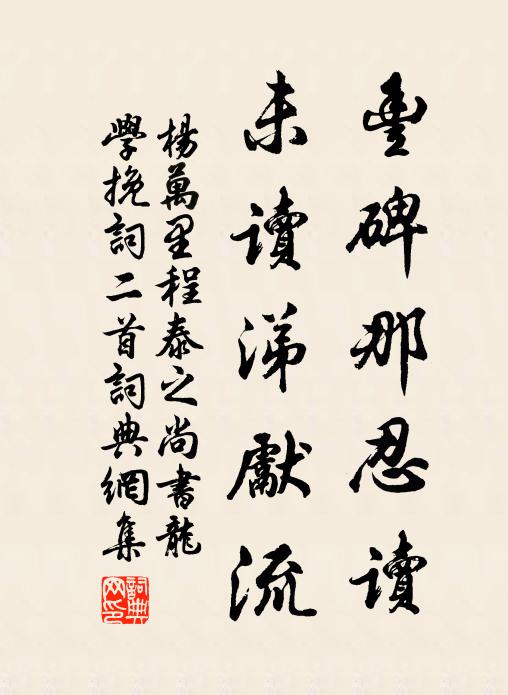 豐碑那忍讀
未讀涕獻流
楊萬里程泰之尚書龍
學挽詞二首詞典網集
詞典
网印